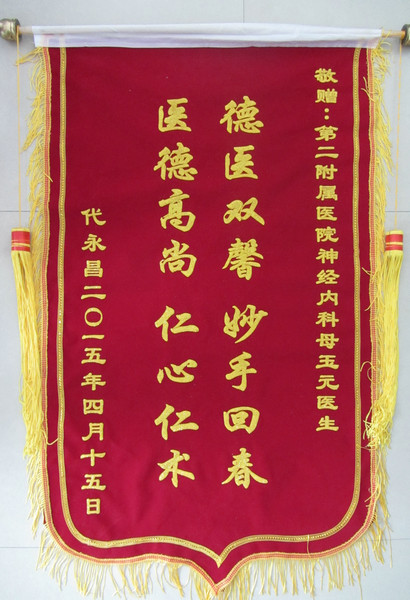 敬赠：第二附属医院神经内科母玉元医生
德医双馨 妙手回春
医德高尚 仁心仁术
代永昌二〇一五年四月十五日